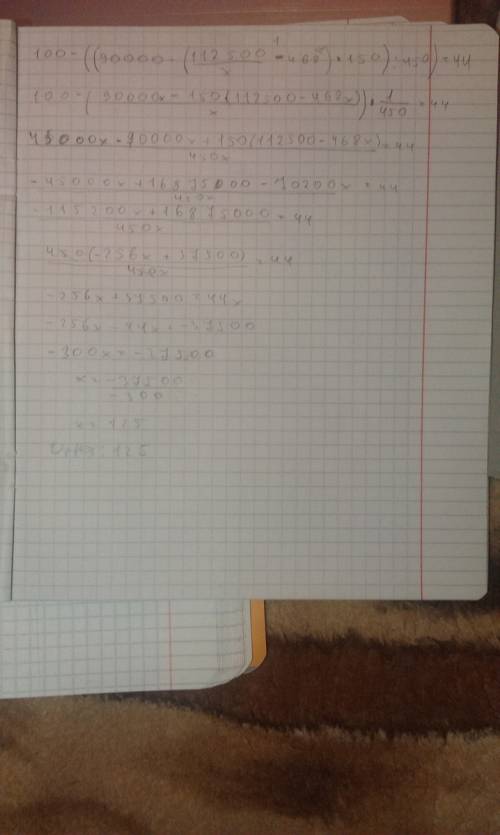 100-((90000-(112500/x-468)*150):450)=44
100-(90000x-150(112500-468x)/x)*1/450=44
45000x-90000x+150(112500-468x)/450x=44
-45000x+16875000-70200x/450x=44
-115200x+16875000/450x=44
450(-256x+37500)/450x=44
-256x+37500=44x
-256x-44x=-37500
-300x=-37500
x=-37500/-300
x=125
Ответ: 125